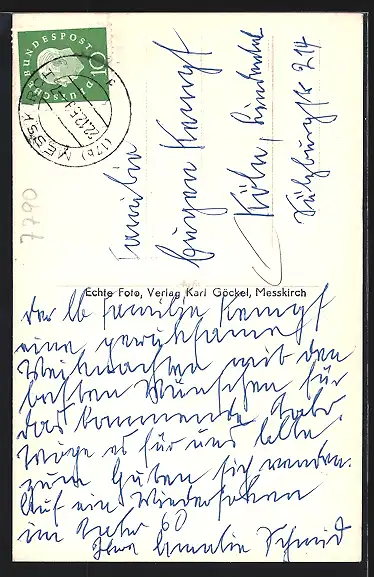 DEUTSCHE BUNDESPOST
10
(17b) MESSKIRCH
22.12.59
7790
Familie
Eugen Kempf
Köln, Lindenthal
Sülzburgstr 214
Echte Foto, Verlag Karl Göckel, Messkirch
Der lb Familie Kempf
eine geruhsame
Weihnachten mit den
besten Wünschen für
das kommende Jahr.
Möge es für uns alle
zum Guten sich wenden.
Auf ein Wiedersehen
im Jahr 60
Amalie Schmid